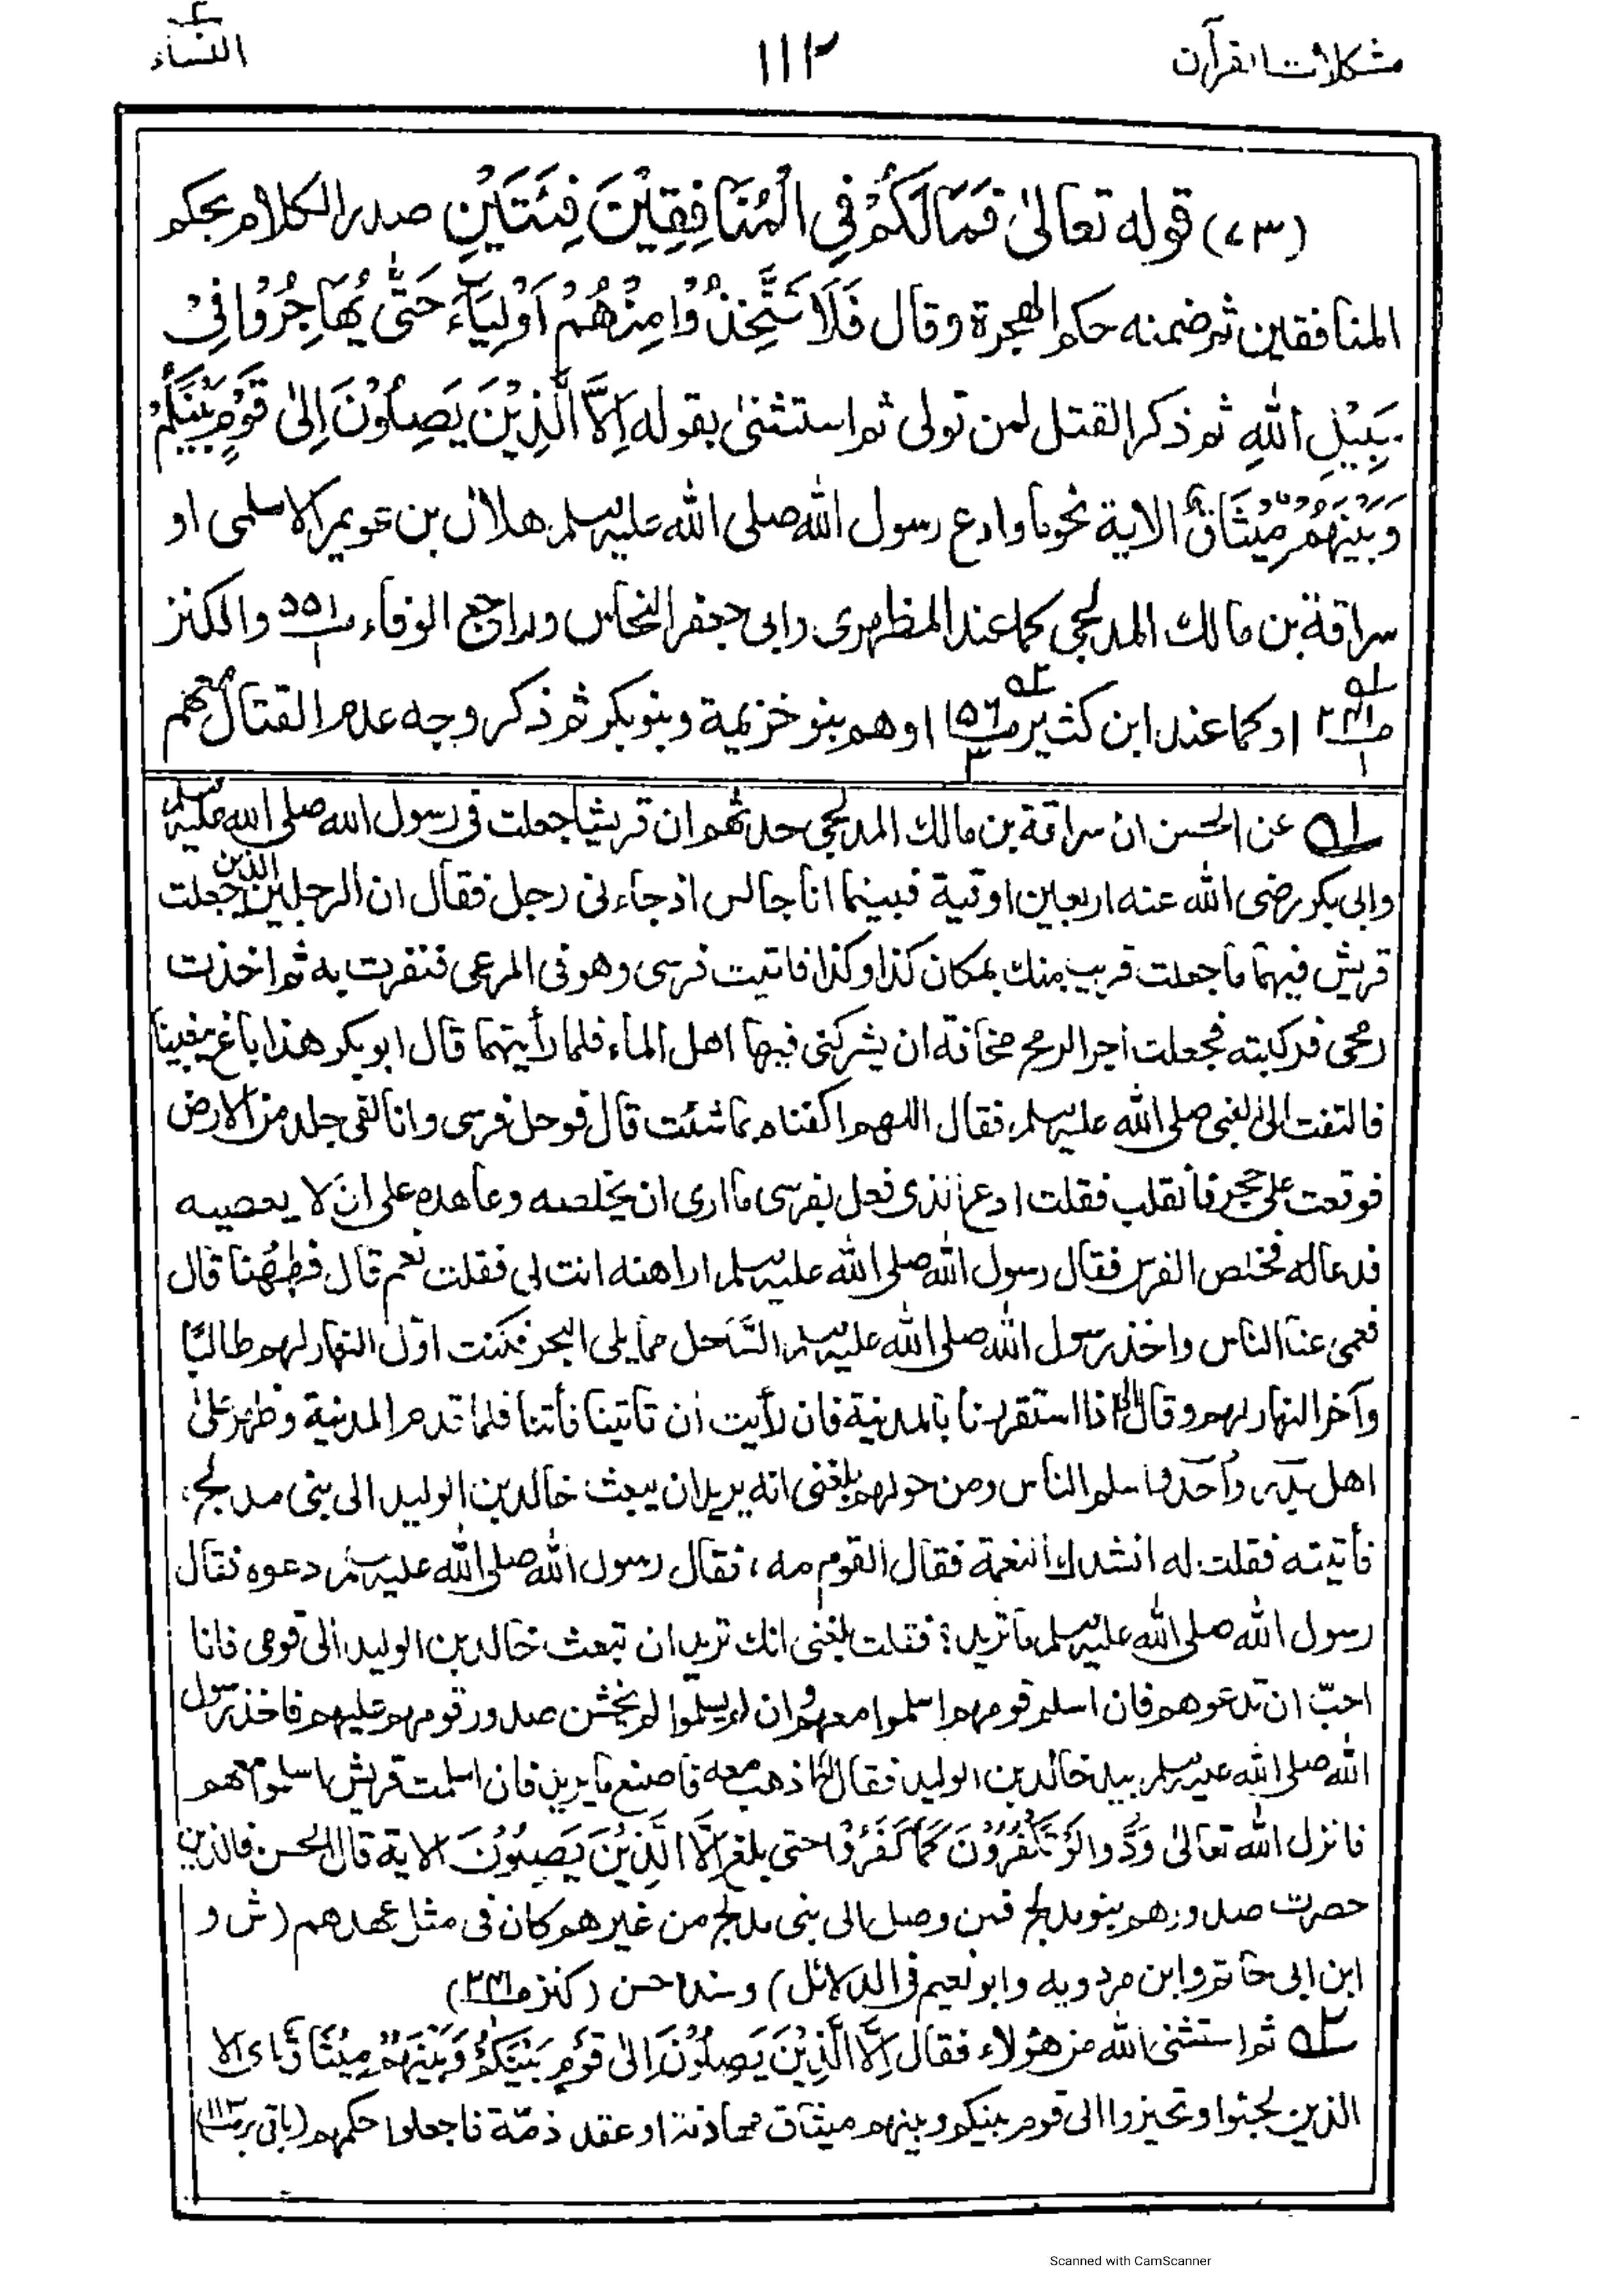 مشكلات القرآن
١١٢
النساء
٤
(٧٣) قوله تعالىٰ فَمَا لَكُمْ فِي الْمُنَافِقِيْنَ فِئَتَيْنِ صدر الكلام بحكم
المنافقين ثم ضمنه حكم الهجرة وقال فَلَا تَتَّخِذُوْا مِنْهُمْ اَوْلِيَآءَ حَتّٰى يُهَاجِرُوْا فِيْ
سَبِيْلِ اللهِ ثم ذكر القتل لمن تولى ثم استثنىٰ بقوله اِلَّا الَّذِيْنَ يَصِلُوْنَ اِلىٰ قَوْمٍ بَيْنَكُمْ
وَبَيْنَهُمْ مِيْثَاقٌ الاية نحو ما وادع رسول الله صلى الله عليه وسلم هلال بن عويمر الاسلمى او
سراقة بن مالك المدلجى كما عند المظهرى وابى جعفر النحاس وراجع الوفاء ص ٥٥١ والكنز
١
ص ٢٣١ له او كما عند ابن كثير ص ١٥٦ ٢ه او هم بنو خزيمة وبنو بكر ثم ذكر وجه عدم القتال معهم
١ ٣
١ه عن الحسن ان سراقة بن مالك المدلجى حدثهم ان قريشا جعلت فى رسول الله صلى الله عليه وسلم
وابى بكر رضى الله عنه اربعين اوقية فبينما انا جالس اذ جاءنى رجل فقال ان الرجلين الذين جعلت
قريش فيهما ما جعلت قريب منك بمكان كذا وكذا فاتيت فرسى وهو فى المرعى فنفرت به ثم اخذت
رمحى فركبته فجعلت اجر الرمح مخافة ان يشركنى فيها اهل الماء فلما رأيتهما قال ابو بكر هذا باغ يبغينا
فالتفت الى النبى صلى الله عليه وسلم، فقال اللهم اكفناه بما شئت قال فوحل فرسى وانا لفى جلد من الارض
فوقعت على حجر فانقلب فقلت ادع الذى فعل بفرسى ما ارى ان يخلصه وعاهده على ان لا يعصيه
فدعا له فخلص الفرس فقال رسول الله صلى الله عليه وسلم اراهنه انت لى فقلت نعم قال فههنا قال
فعمى عنا الناس واخذ رسول الله صلى الله عليه وسلم السّاحل مما يلى البحر فكنت اوّل النهار لهم طالبًا
وآخر النهار لهم وقال لى اذا استقررنا بالمدينة فان رأيت ان تأتينا فأتنا فلما قدم المدينة وظهر علىٰ
اهل بدر وأحد واسلم الناس ومن حولهم بلغنى انه يريد ان يبعث خالد بن الوليد الى بنى مدلج،
فأتيته فقلت له انشدك النعمة فقال القوم مه، فقال رسول الله صلى الله عليه وسلم دعوه فقال
رسول الله صلى الله عليه وسلم ما تريد؟ فقلت بلغنى انك تريد ان تبعث خالد بن الوليد الى قومى فانا
احبّ ان تدعوهم فان اسلم قومهم اسلموا معهم وان لم يسلموا لم يخشن صدور قومهم عليهم فاخذ رسول
الله صلى الله عليه وسلم بيد خالد بن الوليد فقال له اذهب معه فاصنع ما يريد فان اسلمت قريش اسلموا معهم
فانزل الله تعالىٰ وَدُّوا لَوْ تَكْفُرُوْنَ كَمَا كَفَرُوْا حتى بلغ اِلَّا الَّذِيْنَ يَصِلُوْنَ الاية قال الحسن فالذين
حصرت صدورهم بنو مدلج فمن وصل الى بنى مدلج من غيرهم كان فى مثل عهدهم (ش و
ابن ابى حاتم وابن مردويه وابو نعيم فى الدلائل) وسنده حسن (كنز ص ٢٣١)
٢ه ثم استثنى الله من هؤلاء فقال اِلَّا الَّذِيْنَ يَصِلُوْنَ اِلىٰ قَوْمٍ بَيْنَكُمْ وَبَيْنَهُمْ مِيْثَاقٌ اى الا
الذين لجئوا وتحيزوا الى قوم بينكم وبينهم ميثاق مهادنة او عقد ذمّة فاجعلوا حكمهم (باقى بر ص ١١٣)
Scanned with CamScanner